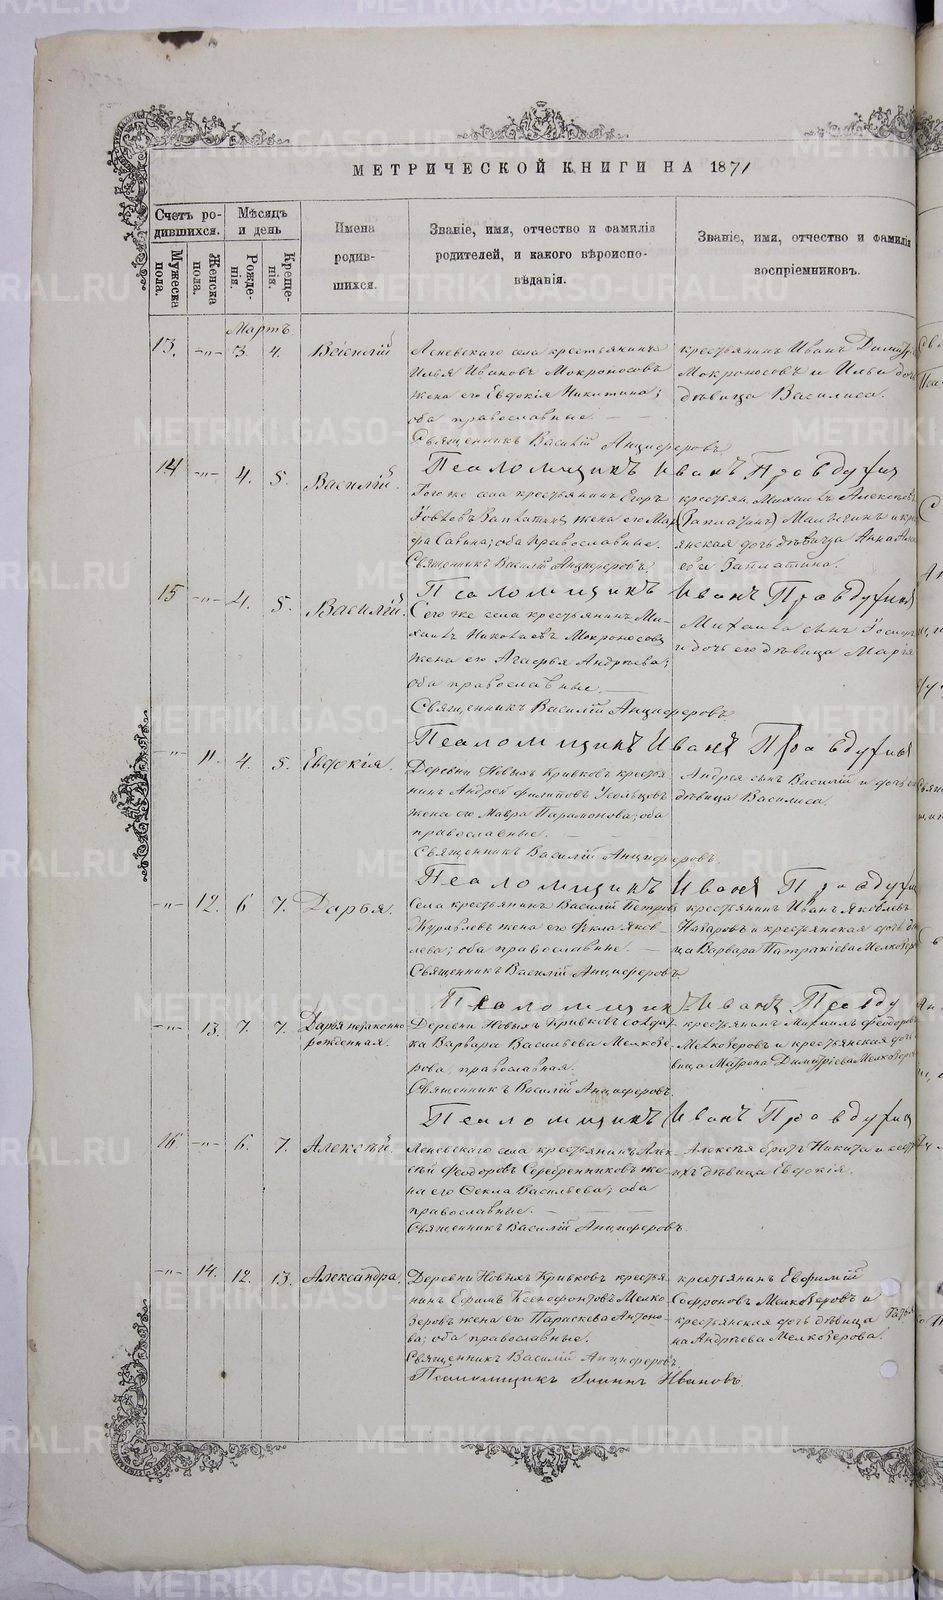 МЕТРИЧЕСКОЙ КНИГИ НА 1871
Счетъ ро-
дившихся.
Мужеска пола.
Женска пола.
Мѣсяцъ
и день
Рожде-
нія.
Креще-
нія.
Имена
родив-
шихся.
Званіе, имя, отчество и фамилія
родителей, и какого вѣроиспо-
вѣданія.
Званіе, имя, отчество и фамилія
воспріемниковъ.
Мартъ
13. -„- 3. 4.
Леневскаго села крестьянинъ
Илья Ивановъ Мокроносовъ
жена его Евдокія Никитина;
оба православные.
Священникъ Василій Анциферовъ
крестьянинъ Иванъ
Мокроносовъ и Ильи доч
дѣвица Василиса.
Псаломщикъ Иванъ Правдухин
14 -„- 4. 5. Василій.
Того же села крестьянинъ Егоръ
жена его Мар
фа Савина; оба православные.
Священникъ Василій Анциферовъ.
Михаилъ
янская дочь дѣвица Анна
Заплатина.
Псаломщикъ Иванъ Правдухин
15 -„- 4. 5. Василій.
Сего же села крестьянинъ Ми-
хаилъ Николаевъ Мокроносовъ
жена его Агафья Андреева;
оба православные.
Священникъ Василій Анциферовъ
Михаила сынъ
и дочь его дѣвица Марія
Псаломщикъ Иванъ Правдухин
-„- 11. 4. 5. Евдокія.
Деревни Новыхъ Кривковъ крестья
нинъ Андрей Филиповъ Усольцовъ
жена его Мавра Парамонова; оба
православные.
Священникъ Василій Анциферовъ.
Андрея сынъ Василій и дочь
дѣвица Василиса.
Псаломщикъ Иванъ Правдух
-„- 12. 6 7. Дарья.
Села крестьянинъ Василій Петровъ
Журавлевъ жена его Фекла Яков-
лева; оба православные.
Священникъ Василій Анциферовъ
крестьянинъ Иванъ Яковлевъ
Назаровъ и крестьянская дочь дѣ
ца Варвара
Псаломщикъ Иванъ Правду
-„- 13. 7. 7. Дарья незаконно
рожденная.
Деревни Новыхъ Кривковъ солдат-
ка Варвара Васильева Мелкозе-
рова, православная.
Священникъ Василій Анциферовъ
крестьянинъ Михаилъ Феодоровъ
Мелкозеровъ и крестьянская дочь
вица Матрона Димитріева Мелкозеро
Псаломщикъ Иванъ Правдухин
16. -„- 6. 7. Алексѣй.
Леневскаго села крестьянинъ Алек-
сѣй Феодоровъ Серебренниковъ же-
на его Фекла Васильева; оба
православные.
Священникъ Василій Анциферовъ.
Алексѣя братъ Никита и сест
ихъ дѣвица Евдокія.
-„- 14. 12. 13. Александра.
Деревни Новыхъ Кривковъ крестья-
нинъ Ефимъ Ксенофонтовъ Мелко
зеровъ жена его Парасковья Антоно-
ва; оба православные.
Священникъ Василій Анциферовъ.
Псаломщикъ Іоаннъ Ивановъ
крестьянинъ Евфимій
Софроновъ Мелкозеровъ и
крестьянская дочь дѣвица Татья
на Андреева Мелкозерова.
METRIKI.GASO-URAL.RU